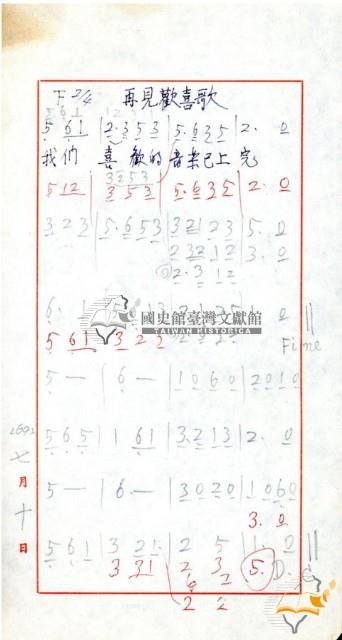 F 2/4 再見歡喜歌
5 6 1 | 2·3 5 3 | 5·6 3 5 | 2· 0
我們 喜歡的音樂已上完
3 2 5 3
5 1 2 | 3 5 3 | 5·6 3 5 | 2· 0
3 2 3 | 5·6 5 3 | 3 2 1 2 3 | 5· 0
2 3 2 1 2 | 3· 0
2·3 1 2
國史館臺灣文獻館
TAIWAN HISTORICA
5 6 1 | 3 2 3
Fine
5 — | 6 — | 1 0 6 0 | 2 0 1 0
5 6 5 | 1 6 1 | 3·2 1 3 | 2· 0
七月十日
5 — | 6· — | 3 0 2 0 | 1 0 6 0
3· 0
5 6 1 | 3 2 1 | 2 5 | 1· 0
3 3 1 | 2 3 | 5· D.C
2 2